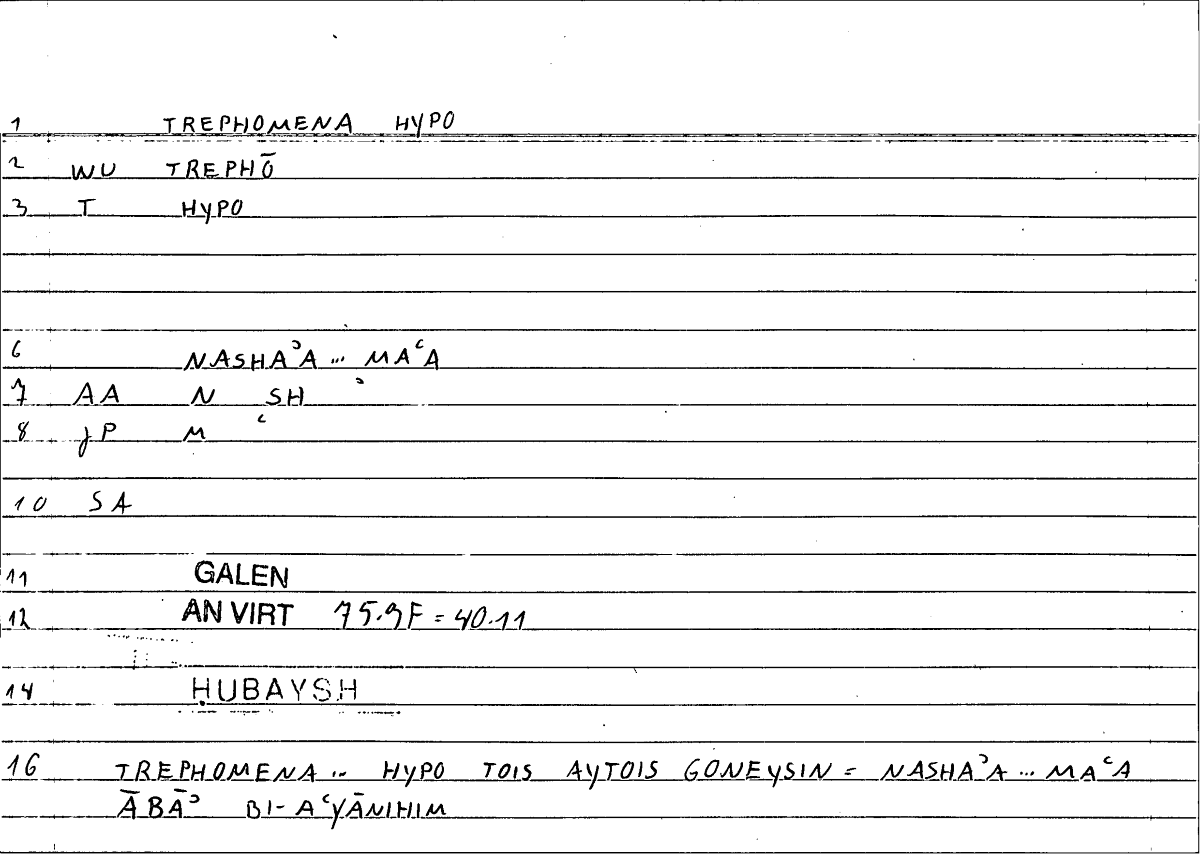 1 TREPHOMENA HYPO
2 WU TREPHŌ
3 T HYPO
6 NASHAʾA ... MAʿA
7 AA N SH ʾ
8 JP M ʿ
10 SA
11 GALEN
12 AN VIRT 75.9F = 40.11
14 ḤUBAYSH
16 TREPHOMENA .. HYPO TOIS AYTOIS GONEYSIN = NASHAʾA ... MAʿA
ĀBĀʾ BI-AʿYĀNIHIM